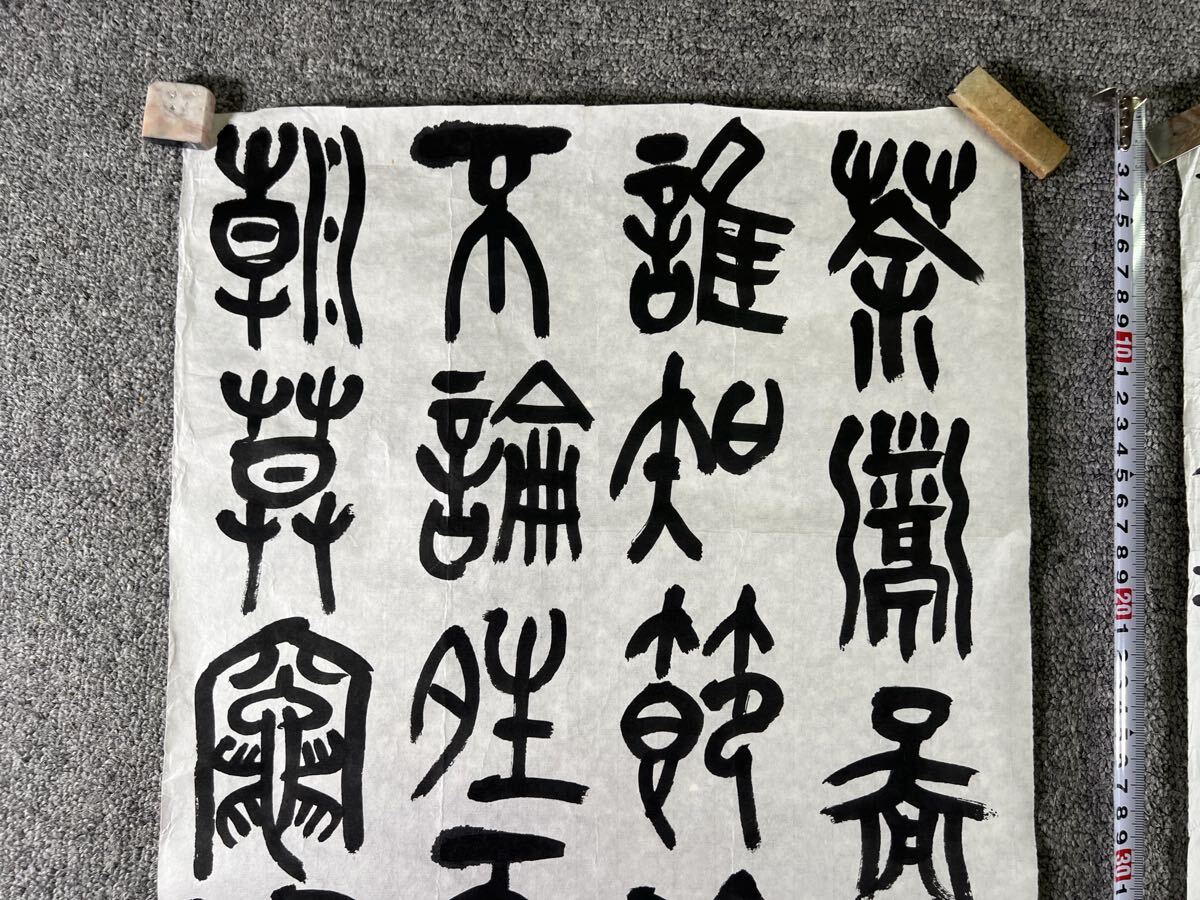 茶鬻
誰知節
不論夝
朝莫竈
3 4 5 6 7 8 9 10 1 2 3 4 5 6 7 8 9 20 1 2 3 4 5 6 7 8 9 30 1